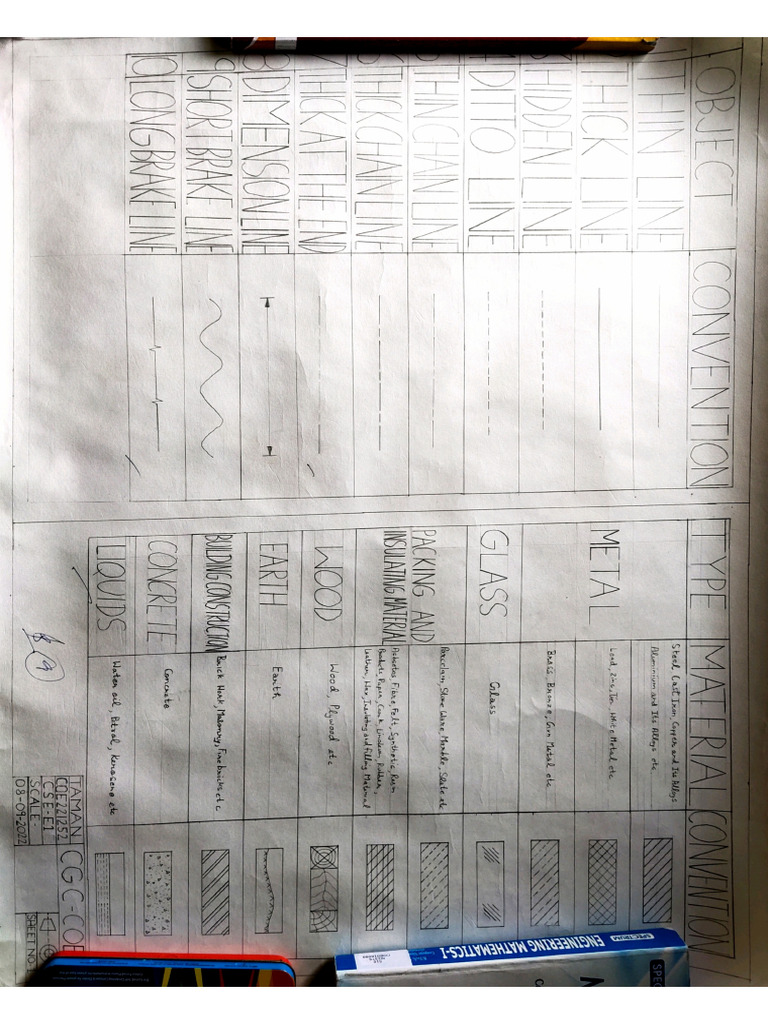 OBJECT CONVENTION
THIN LINE
THICK LINE
HIDDEN LINE
DITO LINE
THIN CHAIN LINE
THICK CHAIN LINE
THICK AT THE END
8 DIMENSION LINE
9 SHORT BRAKE LINE
LONG BRAKE LINE
TYPE MATERIAL CONVENTION
METAL
Steel, Cast Iron, Copper and Its Alloys
Aluminium and Its Alloys etc
Lead, Zinc, Tin, White Metal etc
Brass, Bronze, Gun Metal etc
GLASS
Glass
PACKING AND
INSULATING MATERIAL
Porcelain, Stone Ware, Marble, Slate etc
Asbestos Fibre, Felt, Synthetic Resin
Paper, Cork, Linoleum, Rubber,
Leather, Wax, Insulating and Filling Material
WOOD
Wood, Plywood etc
EARTH
Earth
BUILDING CONSTRUCTION
Brick Work, Masonry, Fire bricks etc
CONCRETE
Concrete
LIQUIDS
Water oil, Petrol, Kerosene etc
9
TAMAN
COE221252
CSE-E1
SCALE-
08-09-2022
CGC-COE
SHEET NO
SPECTRUM
ENGINEERING MATHEMATICS-I